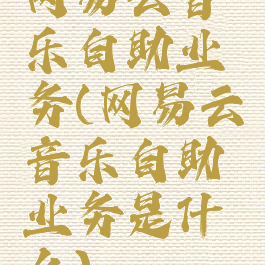 网易云音
乐自助业
务(网易云
音乐自助
业务是什
么)